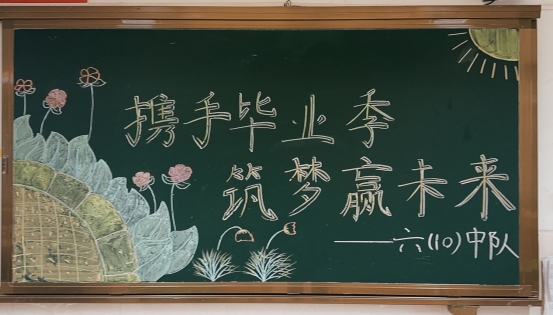 携手毕业季
筑梦赢未来
——六(10)中队